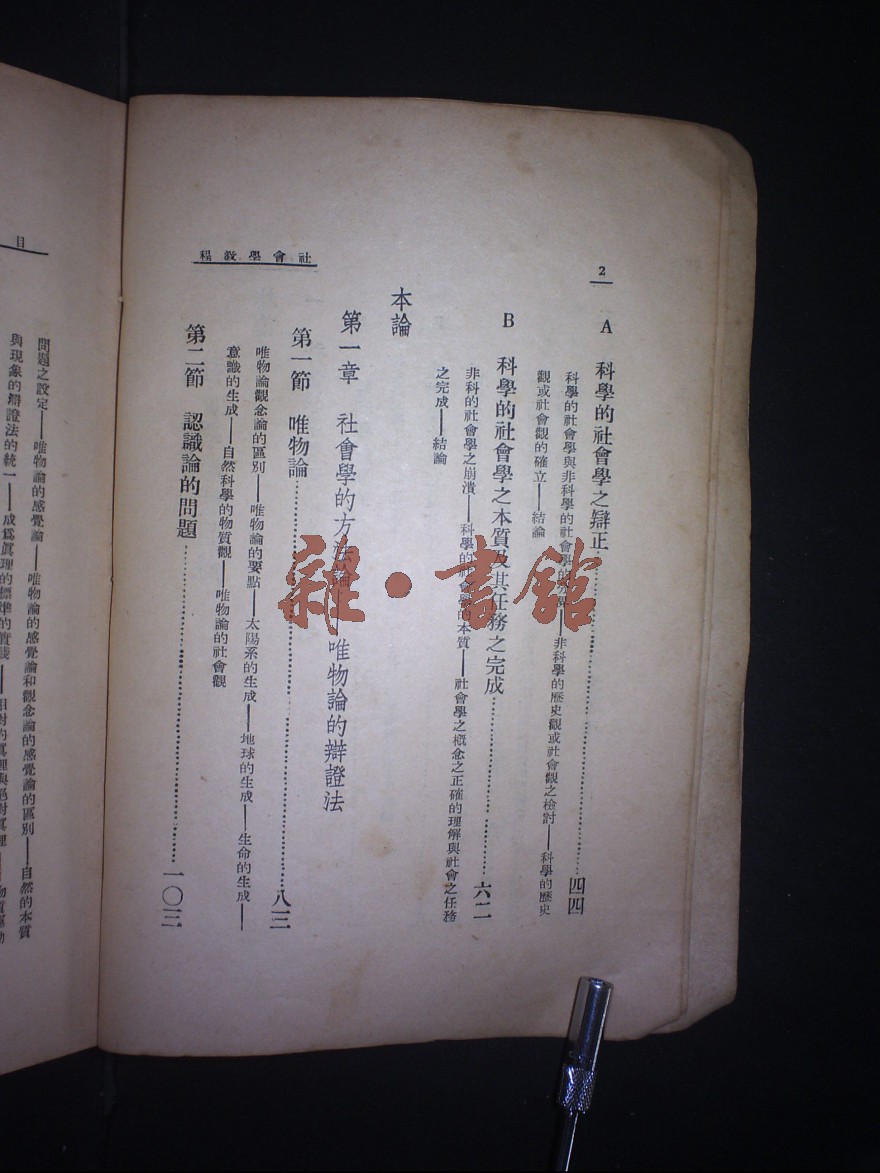 2
社會學敎程
A 科學的社會學之辯正……四四
科學的社會學與非科學的社會學的——非科學的歷史觀或社會觀之檢討——科學的歷史
觀或社會觀的確立——結論
B 科學的社會學之本質及其任務之完成……六二
非科的社會學之崩潰——科學的社會學的本質——社會學之槪念之正確的理解與社會之任務
之完成——結論
本論
第一章 社會學的方法論——唯物論的辯證法
第一節 唯物論……八三
唯物論觀念論的區別——唯物論的要點——太陽系的生成——地球的生成——生命的生成——
意識的生成——自然科學的物質觀——唯物論的社會觀
第二節 認識論的問題……一〇三
目
問題之設定——唯物論的感覺論——唯物論的感覺論和觀念論的感覺論的區別——自然的本質
與現象的辯證法的統一——成爲眞理的標準的實踐——相對的眞理與絕對眞理
雜·書館